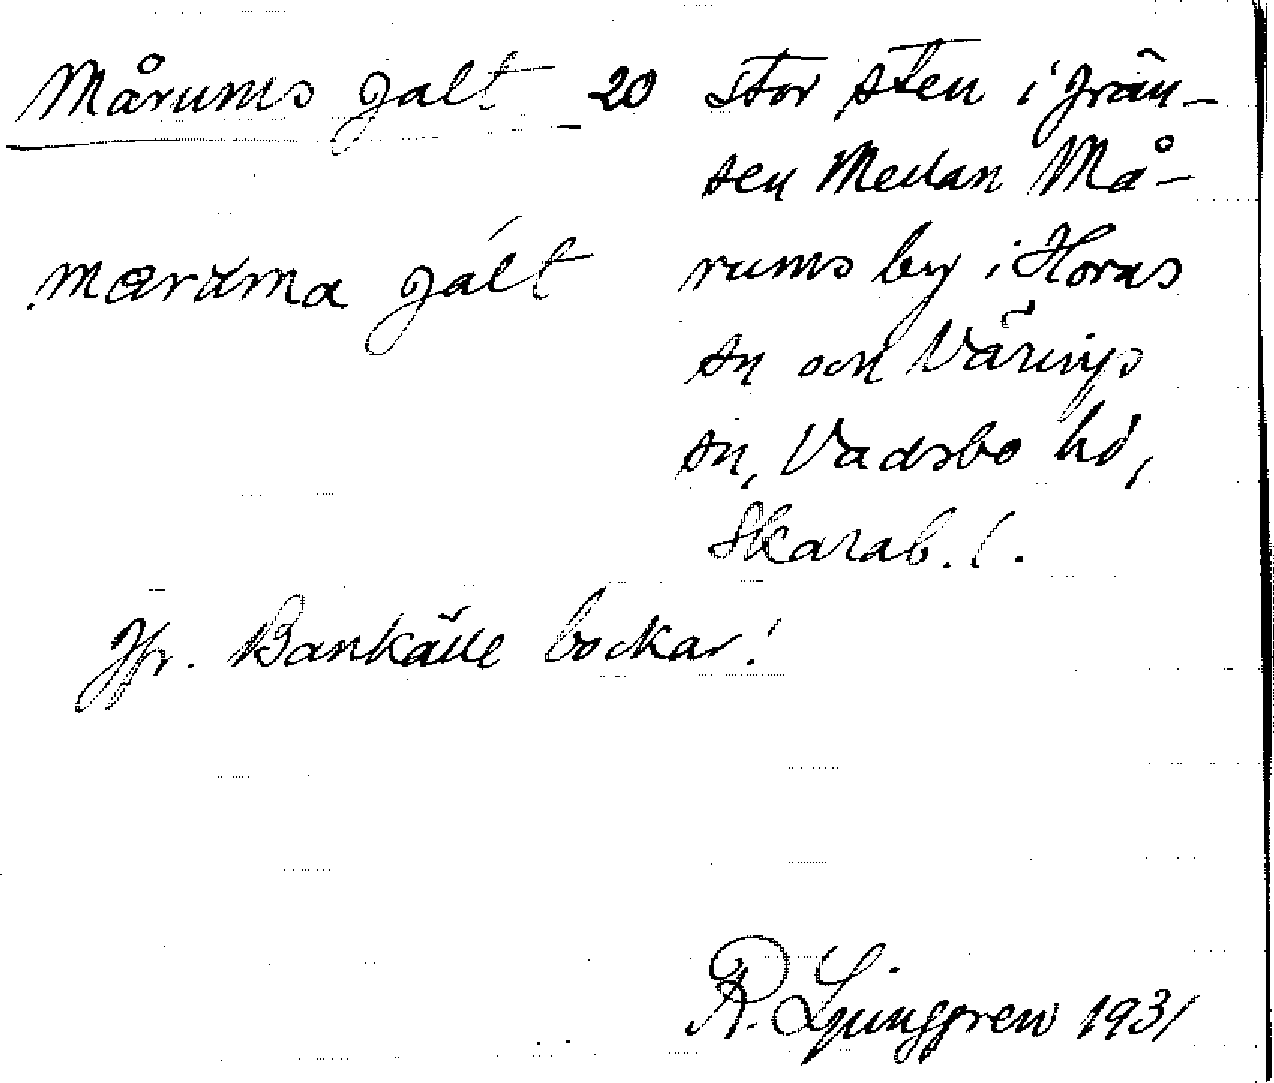 Mårums galt 20 Stor sten i grän-
sen Mellan Må-
mærɑma gált rums by i Horns
sn och Värings
sn, Vadsbo hd,
Skarab. l.
Jfr. Bankälle bockar!
R. Ljunggren 1931